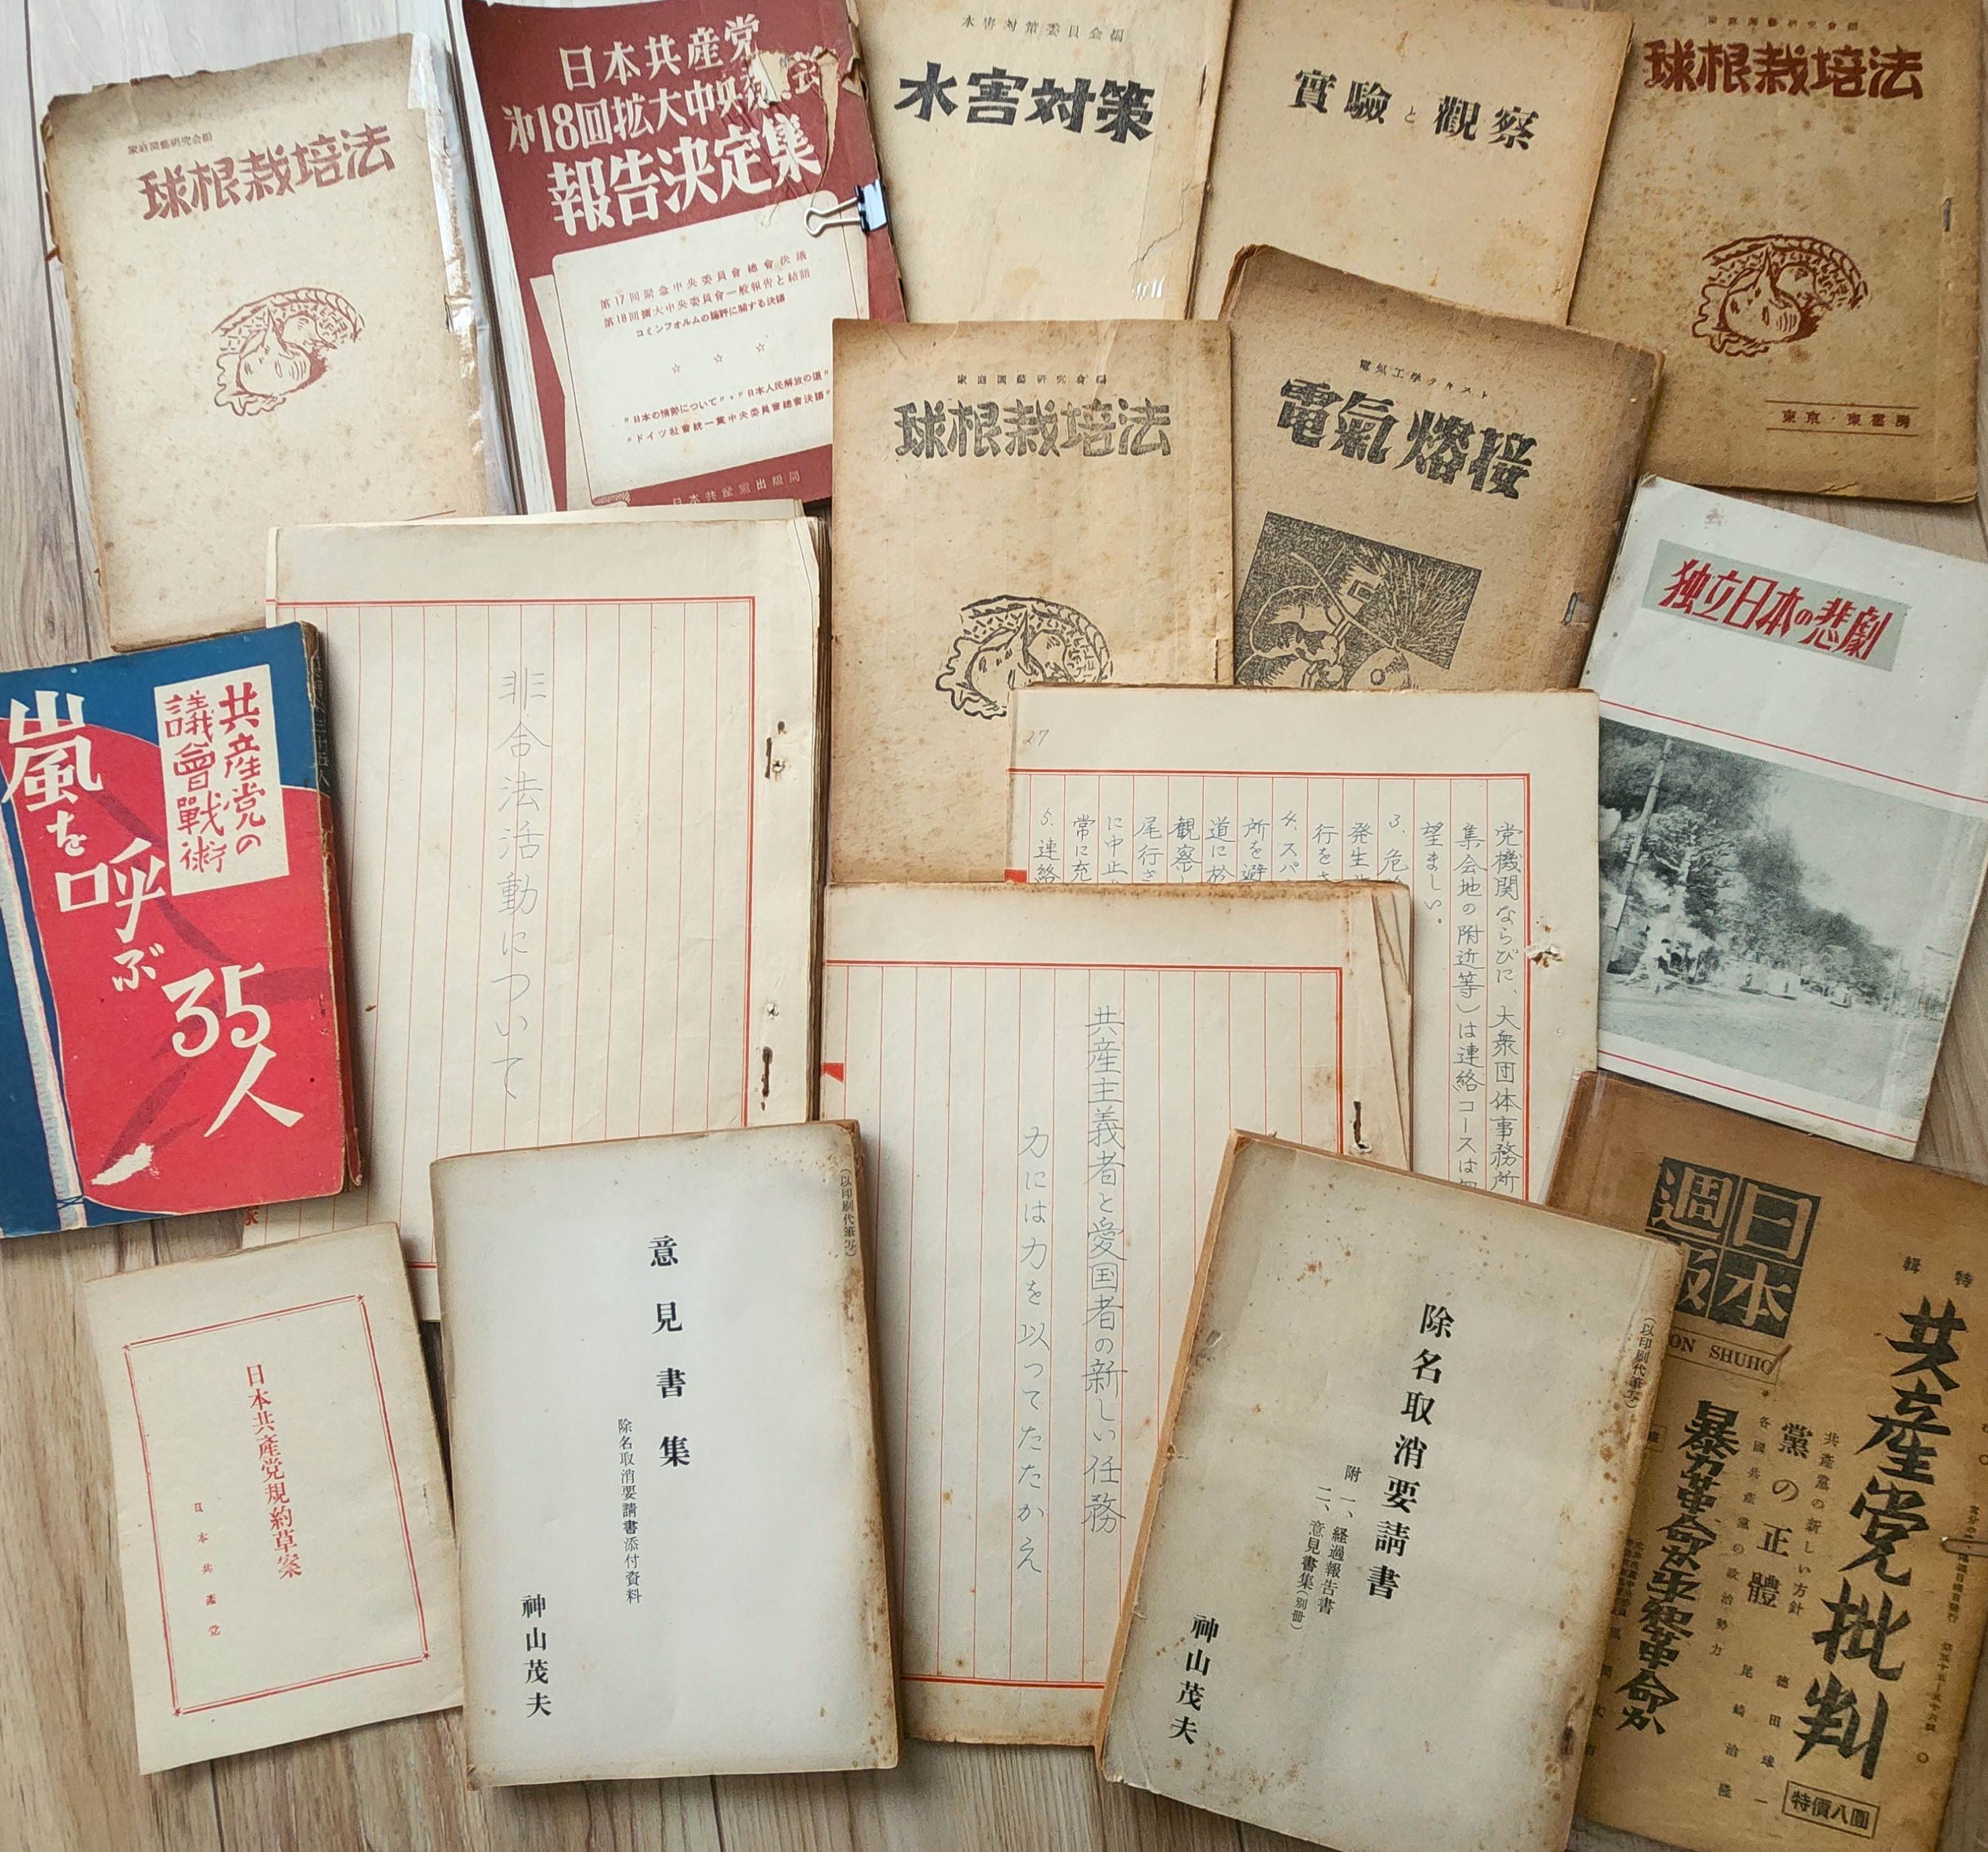 家庭園藝研究会編
球根栽培法
日本共産党
第18回拡大中央
報告決定集
第17回緊急中央委員會總會決議
第18回擴大中央委員會一般報告と結語
コミンフォルムの論評に關する決議
☆ ☆ ☆
"日本の情勢について"・"日本人民解放の道"
"ドイツ社會統一黨中央委員會總會決議"
日本共産黨出版局
水害対策委員会編
水害対策
實驗と觀察
家庭園藝研究会編
球根栽培法
東京・東書房
家庭園藝研究会編
球根栽培法
電気工學テキスト
電氣熔接
独立日本の悲劇
共産党の
議會戰術
嵐を呼ぶ35人
非合法活動について
27
党機関ならびに、大衆団体事務所
集会地の附近等)は連絡コースは
望ましい。
3. 危
発生
行を
4. スパ
所を避
道に於
観察
尾行
に中止
常に充
5. 連絡
共産主義者と愛国者の新しい任務
力には力を以ってたたかえ
日本共産党規約草案
日本共產党
(以印刷代筆写)
意見書集
除名取消要請書添付資料
神山茂夫
(以印刷代筆写)
除名取消要請書
附 一、経過報告書
二、意見書集(別冊)
神山茂夫
日本
週報
ON SHUHO
特輯
共産党批判
共産黨の新しい方針 徳田球一
黨の正體
各國共産黨の政治勢力 尾崎治隆
暴力革命か平和革命か
特價八圓